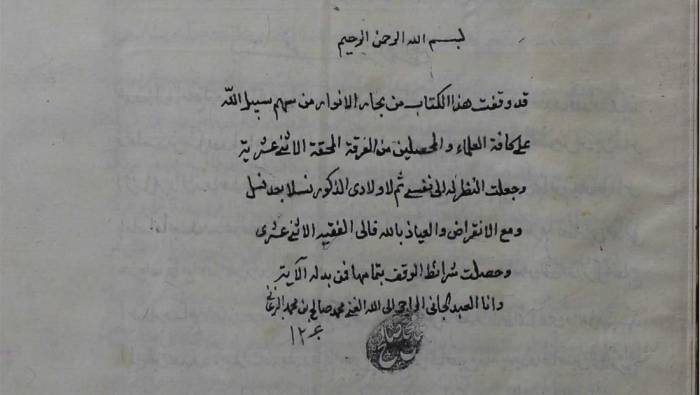 بسم الله الرحمن الرحيم
قد وقفت هذا الكتاب من بحار الانوار من سهم سبيل الله
على كافة العلماء والمحصلين من الفرقة المحقة الاثنى عشرية
وجعلت النظر له الى نفسي ثم لاولادى الذكور نسلا بعد نسل
ومع الانقراض والعياذ بالله فالى الفقيه الاثنى عشرى
وحصلت شرائط الوقف بتمامها فمن بدله الآية
وانا العبد الجانى الراجى الى الله الغنى محمد صالح بن محمد
محمد صالح